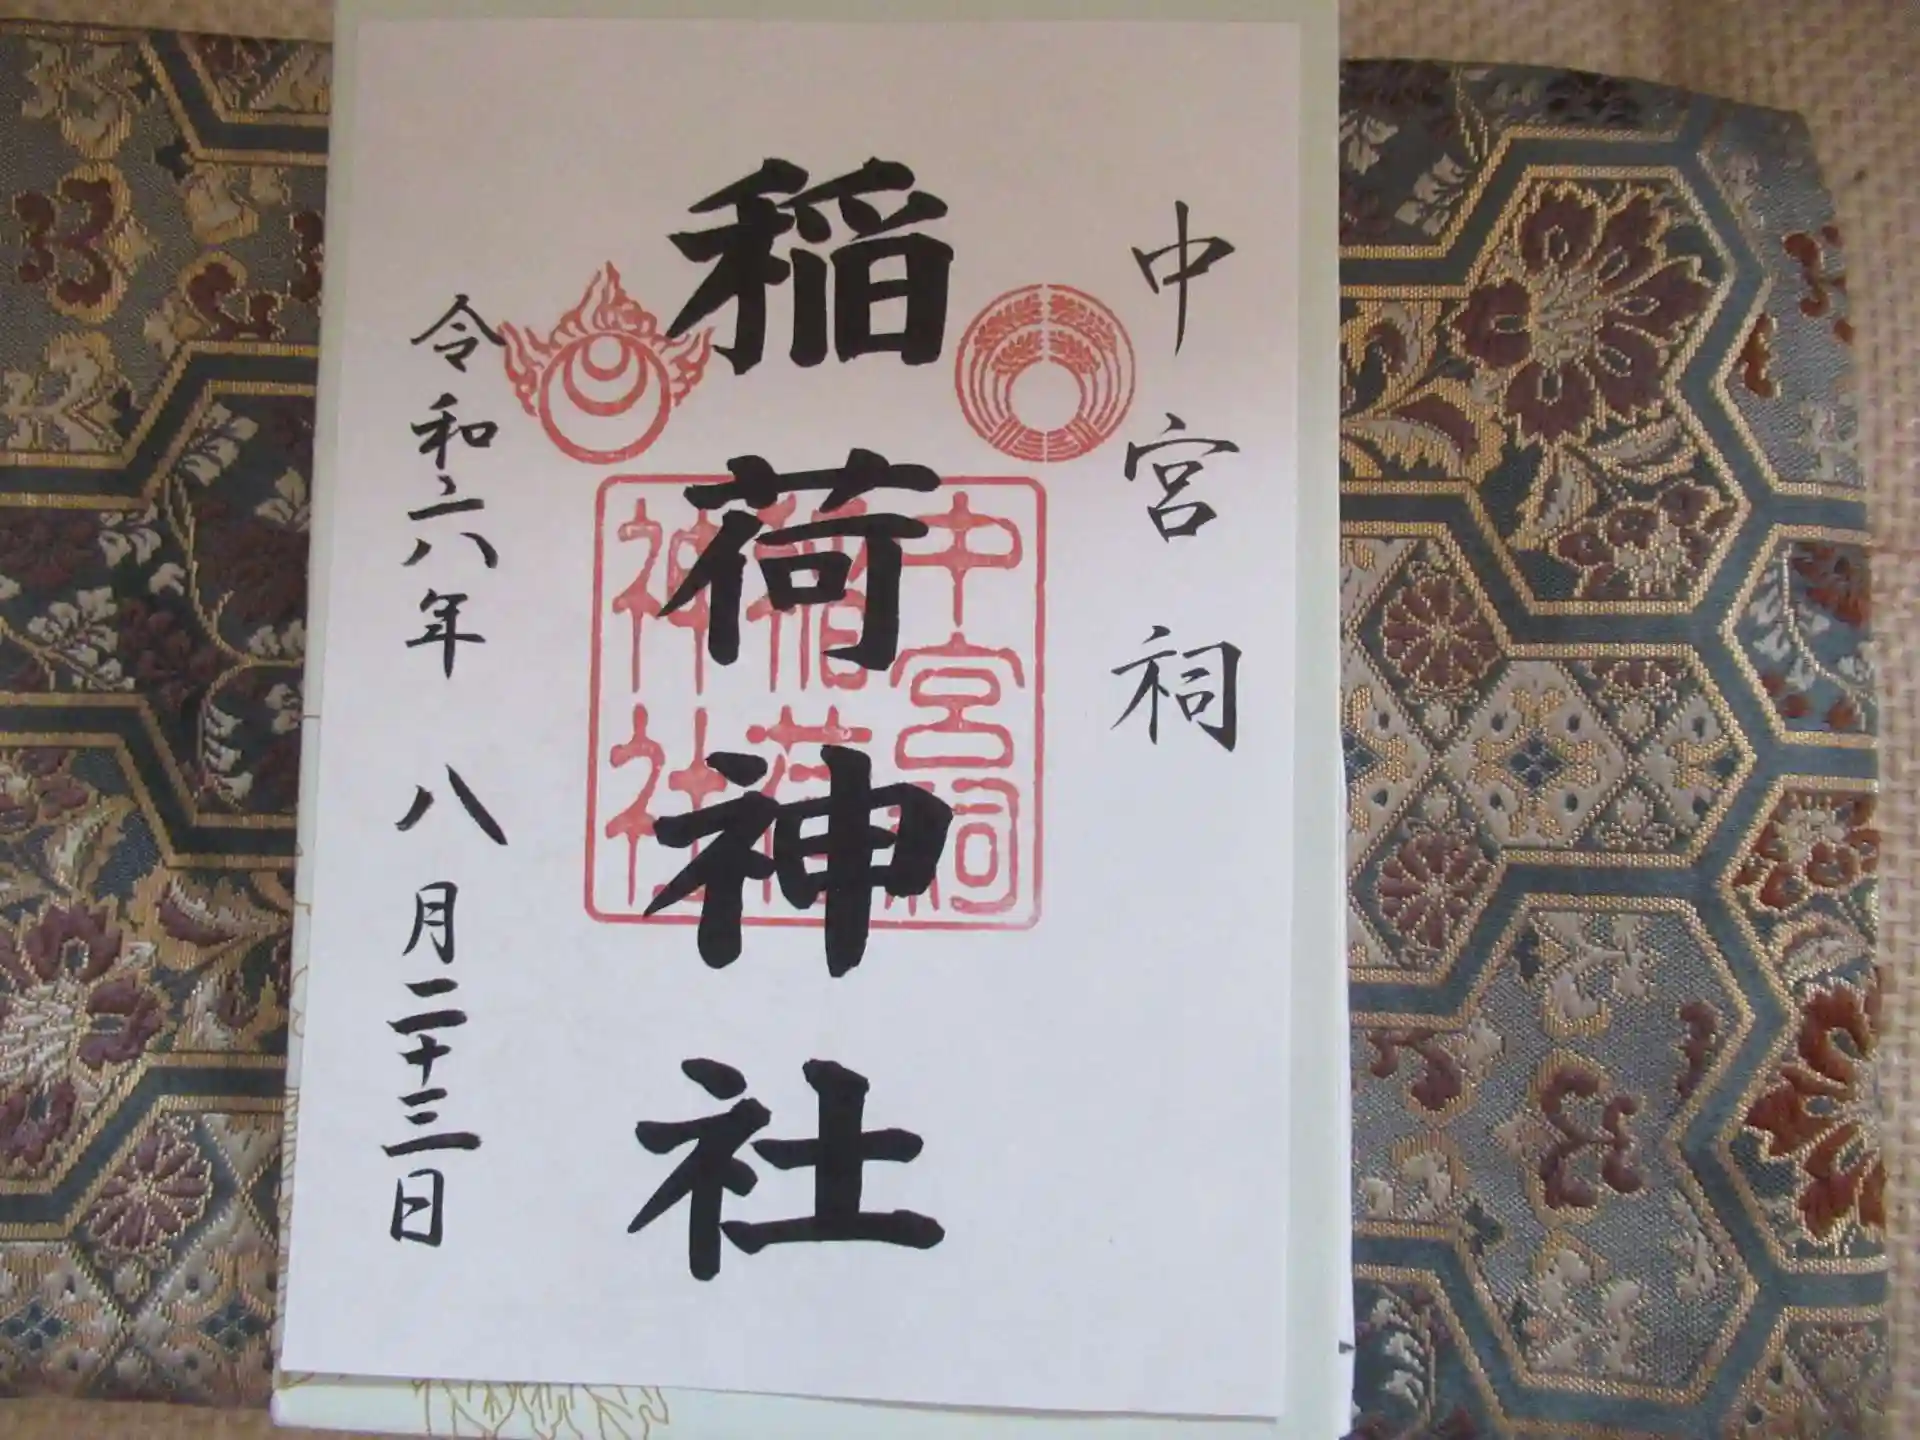 中宮祠
稲荷神社
中宮祠
稲荷
神社
令和六年 八月二十三日